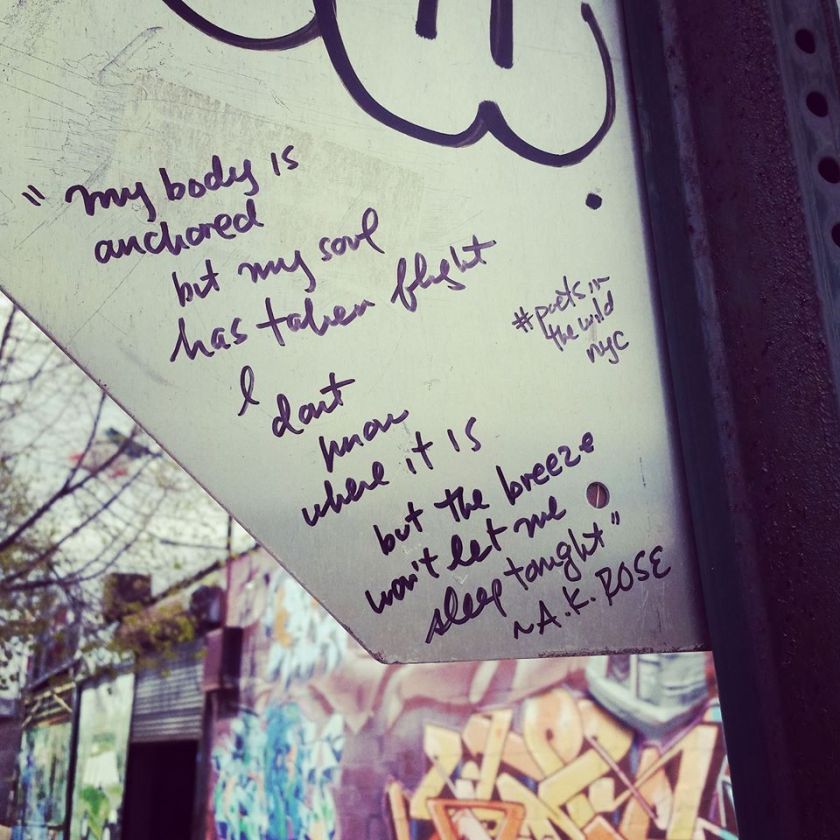 "my body is
anchored
but my soul
has taken flight
I dont
know
where it is
but the breeze
won't let me
sleep tonight"
~A.K. ROSE
#poets in
the wild
nyc